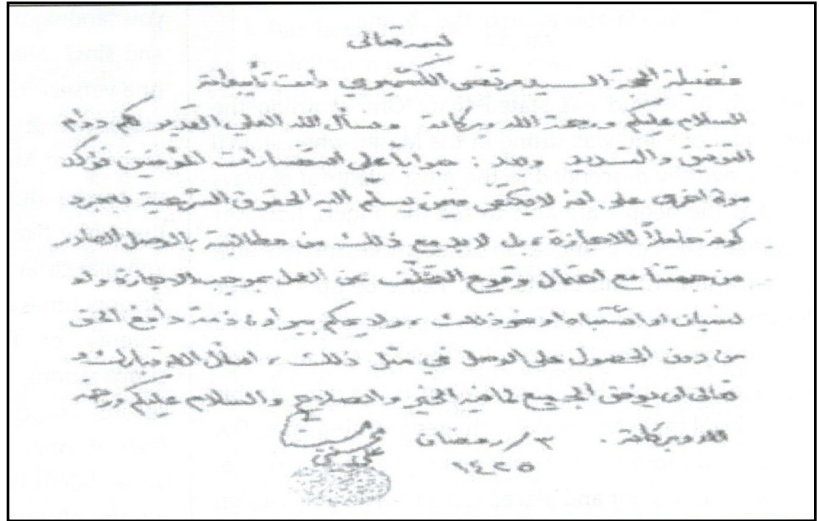 بسمه تعالى
فضيلة الحجة السيد مرتضى الكشميري دامت تأييداته
السلام عليكم ورحمة الله وبركاته ونسأل الله العلي القدير لكم دوام
التوفيق والتسديد وبعد : جواباً على استفسارات المؤمنين نؤكد
مرة اخرى على انه لايكتفى فيمن يسلّم اليه الحقوق الشرعية بمجرد
كونه حاملاً للاجازة ، بل لابد مع ذلك من مطالبته بالوصل الصادر
من جهتنا مع احتمال وقوع التخلّف عن العمل بموجب الاجازة ولو
لنسيان او اشتباه او نحو ذلك ، ولا يحكم ببراءة ذمة دافع الحق
من دون الحصول على الوصل في مثل ذلك ، اسأل الله تبارك و
تعالى ان يوفق الجميع لما فيه الخير والصلاح والسلام عليكم ورحمة
الله وبركاته . ٣/رمضان
١٤٢٥